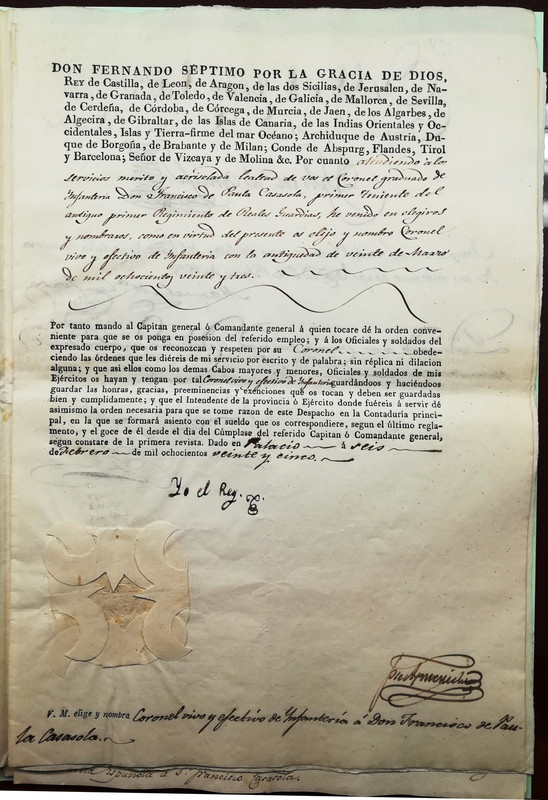 DON FERNANDO SÉPTIMO POR LA GRACIA DE DIOS,
REY de Castilla, de Leon, de Aragon, de las dos Sicilias, de Jerusalen, de Na-
varra, de Granada, de Toledo, de Valencia, de Galicia, de Mallorca, de Sevilla,
de Cerdeña, de Córdoba, de Córcega, de Murcia, de Jaen, de los Algarbes, de
Algecira, de Gibraltar, de las Islas de Canaria, de las Indias Orientales y Oc-
cidentales, Islas y Tierra-firme del mar Océano; Archiduque de Austria, Du-
que de Borgoña, de Brabante y de Milan; Conde de Abspurg, Flandes, Tirol
y Barcelona; Señor de Vizcaya y de Molina &c. Por cuanto atendiendo a los
servicios merito y acrisolada lealtad de vos el Coronel graduado de
Infanteria Don Francisco de Paula Casasola, primer Teniente del
antiguo primer Regimiento de Reales Guardias, he venido en elegiros
y nombraros, como en virtud del presente os elijo y nombro Coronel
vivo y efectivo de Infanteria con la antiguedad de veinte de Marzo
de mil ochocientos veinte y tres.
Por tanto mando al Capitan general ó Comandante general á quien tocare dé la orden conve-
niente para que se os ponga en posesion del referido empleo; y á los Oficiales y soldados del
expresado cuerpo, que os reconozcan y respeten por su Coronel obede-
ciendo las órdenes que les diéreis de mi servicio por escrito y de palabra; sin réplica ni dilacion
alguna; y que asi ellos como los demas Cabos mayores y menores, Oficiales y soldados de mis
Ejércitos os hayan y tengan por tal Coronel vivo y efectivo de Infanteria guardándoos y haciéndoos
guardar las honras, gracias, preeminencias y exenciones que os tocan y deben ser guardadas
bien y cumplidamente; y que el Intendente de la provincia ó Ejército donde fuéreis á servir dé
asimismo la orden necesaria para que se tome razon de este Despacho en la Contaduría princi-
pal, en la que se formará asiento con el sueldo que os correspondiere, segun el último regla-
mento, y el goce de él desde el dia del Cúmplase del referido Capitan ó Comandante general,
segun constare de la primera revista. Dado en Palacio á seis
de Febrero de mil ochocientos veinte y cinco.
Yo el Rey.
V. M. elige y nombra Coronel vivo y efectivo de Infanteria á Don Francisco de Pau-
la Casasola.
Francisco Casasola